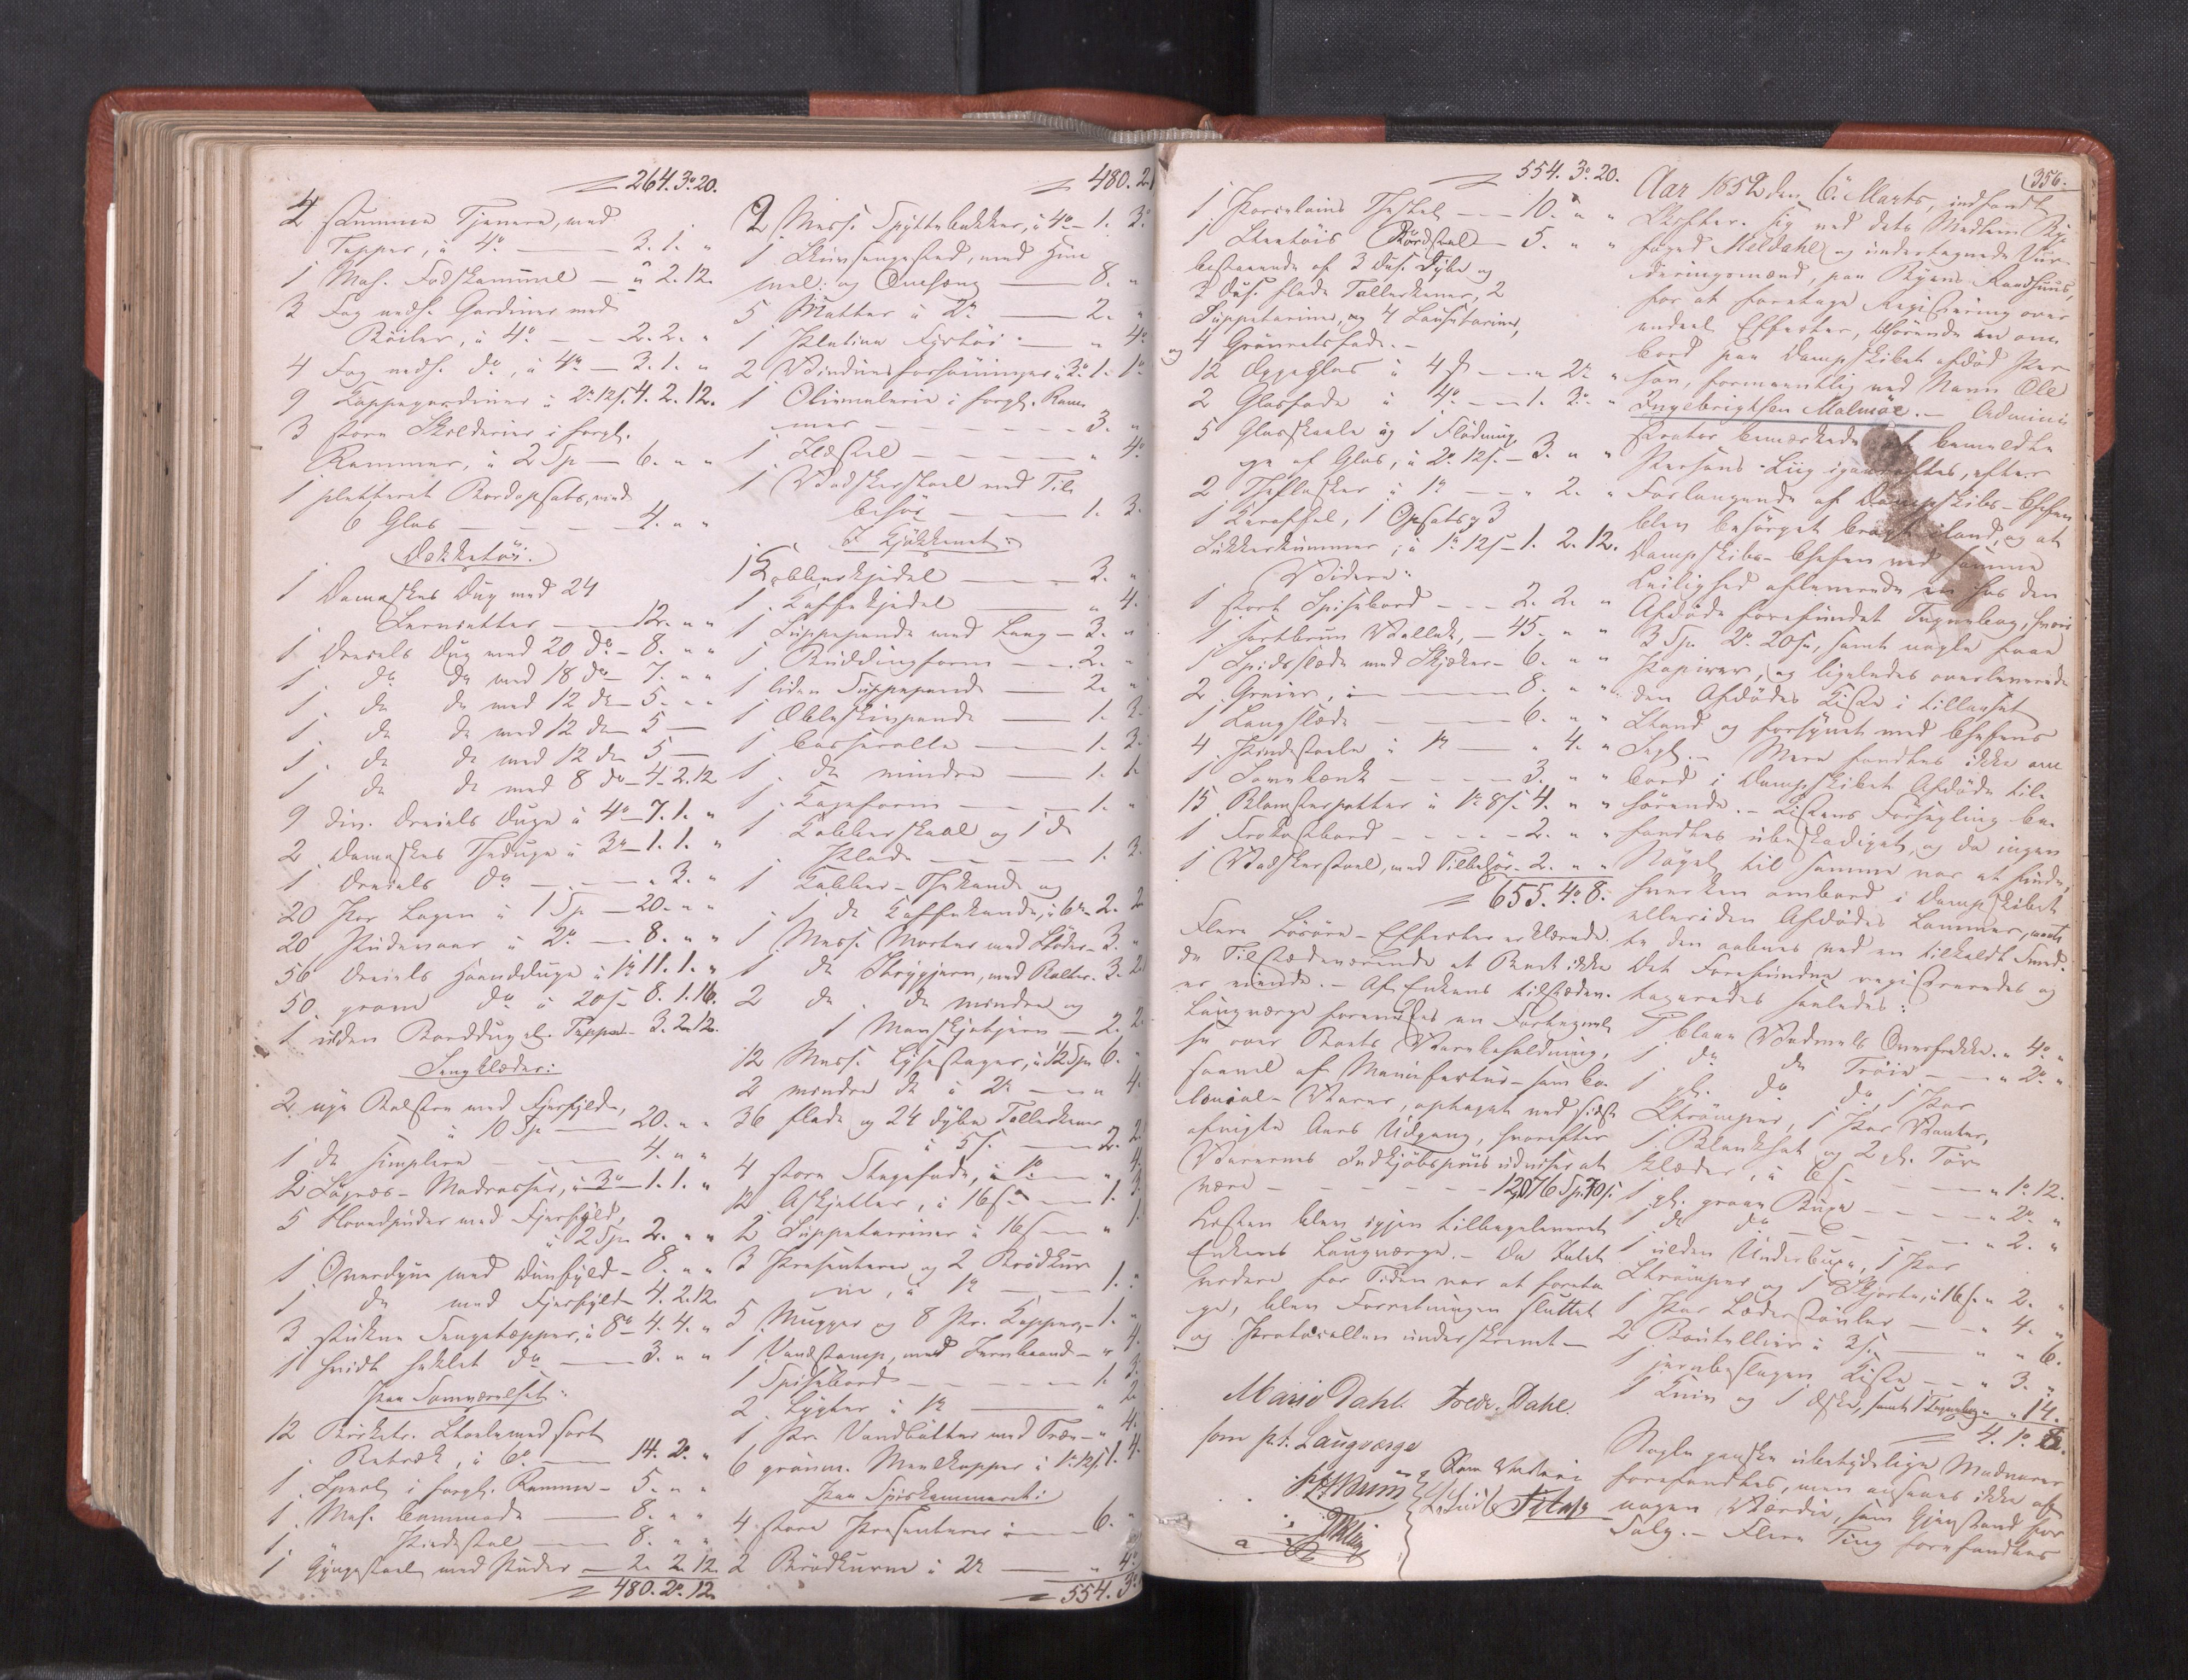 264. 3. 20.
4 stumme Tjenere, med
Tapper, à 4 — 3. 1. "
1 Mah. Fodskammel — " 2. 12.
3 Fag neds. Gardiner med
à 4 — 2. 2. "
4 Fag neds. do, à 4 — 3. 1. "
9 Kappegardiner à 2 12 s. 4. 2. 12.
3 store Skilderier i forgl.
Rammer, à 2 Sp — 6. " "
1 pletteret Bordopsats, med
6 Glas — 4. " "
Dækketøi.
1 Damaskes Dug med 24
Servietter — 12. " "
1 Dreiels Dug med 20 do — 8. " "
1 do do med 18 do — 7. " "
1 do do med 12 do — 5. " "
1 do do med 12 do 5 —
1 do do med 12 do 5 —
1 do do med 8 do — 4. 2. 12
9 div. Dreiels Duge à 4 — 7. 1. "
2 Damaskes Theduge à 3 — 1. 1. "
1 Dreiels do — " 3. "
20 Par Lagen à 1 Sp — 20. " "
20 Pudevaar à 2 — 8. " "
56 Dreiels Haandduge à 1 11. 1. "
50 grove do à 20 s — 8. 1. 16.
1 ulden Borddug el. Teppe — 3. 2. 12.
Sengklæder:
2 nye Bolstre med Fjerfyld,
à 10 Sp — 20. " "
1 do simplere — 4. " "
2 Madrasser, à 3 — 1. 1. "
5 Hovedpuder med Fjerfyld,
à 2 2. " "
1 Overdyne med Duunfyld — 8. " "
1 do med Fjerfyld — 4. 2. 12.
3 stukne Sengetepper, à 8 — 4. 4. "
1 hvidt heklet do — 3. " "
Paa Sovværelset:
12 Birketr. Stole med sort
Betræk, à 6 — 14. 2. "
1 Speil i forgl. Ramme — 5. " "
1 Mah. Commode — 8. " "
1 " Pidestal — 8. " "
1 Gyngestoel med Puder — 2. 2. 12
480. 2. 12.
480. 2
2 Mess. Spyttebakker, à 4 — 1. 3.
1 Skuvsengested, med Him
mel: og Omhæng — 8. "
5 Matter à 2 — 2. "
1 Platina Fyrtøi — " 4
2 Vinduesforsætninger à 3. 1. 1
1 Oliemalerie i forgl. Ram
mer — 3. "
1 — " 4
1 Vadskerstoel med Til
behør — 1. 3.
I Kjøkkenet:
1 Kobberkjedel — 3. "
1 Kaffekjedel — " 4.
1 Suppepande med Laag — 3. "
1 Buddingform — 2. "
1 liden Suppepande — 2. "
1 Æbleskivpande — 1. 3.
1 Casserolle — 1. 3.
1 do mindre — 1. 1.
1 Kageform — 1. "
1 Kobberskaal og 1 do
Plade — 1. 3.
1 Kobber-Thekande og
1 do Kaffekande, à 6 — 2. 2
1 Mess. Morter med Støder — 3. "
1 do Strygjern, med Bolter — 3. 2
2 do do mindre og
1 — 2. 2
12 Mess. Lysestager, à 1/2 Sp 6. "
2 mindre do à 2 — " 4
36 flade og 24 dybe Tallerkener
à 5 s — 2. 2
4 store Stegefade, à 1 — " 4.
12 Askjetter, à 16 s — 1. 3.
2 Suppeterriner à 16 s — " 1.
3 Præsenterer og 2 Brødkur
ve, à 1 — 1. "
5 Mugger og 8 Pr. Kopper, — 1. "
1 Vandstamp, med Jernbaand — " 4.
1 Spisebord — 1. 3.
2 Lygter à 1 — " 2
1 Pr. Vandbøtter med Træ — " 4.
6 à 1 12 s 1. 4.
Paa Spiskammeret:
4 store Præsenterer — 6. "
2 Brødkurve à 2 — " 4
554. 3.
356.
554. 3. 20.
1 Porcelains Thestel — 10. " "
1 Steentøis Bordstel — 5. " "
bestaaende af 3 Dus. Dybe og
3 Dus. flade Tallerkener, 2
Suppeterriner, og 4 Sauseterriner,
og 4 Grønnetsfade. —
12 Ølglas à 4 s — " 2 "
2 Glasfade à 4 — 1. 3. "
5 Glasskaale og 1 Flødmug
ge af Glas, à 2 12 s. — 3. " "
2 Theflasker à 1 — " 2. "
1 Karaffel, 1 Opsats og 3
Sukkerkummer, à 1 12 s — 1. 2. 12.
Videre:
1 stort Spisebord — 2. 2. "
1 sortbrun Vallak, — 45. " "
1 Spidsslæde med Skjæker — 6. " "
2 Greier, — 8. " "
1 Langslæde — 6. " "
4 Pindestole à 1 — " 4. "
1 Lovebænk — 3. " "
15 Blomsterpotter à 1 8 s. 4. " "
1 Frokostbord — 2. " "
1 Vadskerstoel, med Tilbehør — 2. " "
655. 4. 8.
Flere Løsøre-Effecter erklærede
de Tilstedeværende at Boet ikke
er eiende. — Af Enkens tilstædev.
Laugværge foreviistes en Fortegnel
se over Boets Varebeholdning,
saavel af Manufactur- som Co-
lonial-Varer, optaget ved sidst
afvigte Aars Udgang, hvorefter
Varernes Indkjøbspriis udvises at
være — 12,076 Sp. 70 s.
Listen blev igjen tilbageleveret
Enkens Laugværge. — Da Intet
videre for Tiden var at foreta
ge, blev Forretningen sluttet
og Protocollen underskrevet —
Marie Dahl. Fredr. Dahl
som p.t. Laugværge
Aar 1852 den 6. Marts, indfandt
Skifter. sig ved dets Medlem By-
foged Meldahl og undertegnede Vur-
deringsmænd, paa Byens Raadhuus,
for at foretage Registrering over
endeel Effecter, tilhørende en om
bord paa Dampskibet afdød Per
son, formeentlig ved Navn Ole
Ingebrigtsen Malmøe. — Admini
strator bemærkede at bemeldte
Persons Liig igaaraftes, efter
Forlangende af Dampskibs-Chefen
blev besørget bragt iland, og at
Dampskibs-Chefen ved samme
Leilighed afleverede en hos den
Afdøde forefundet Tegnebog, hvori
3 Sp. 2. 20 s., samt nogle faae
Papirer, og ligeledes overleverede
den Afdødes Kiste i tillaaset
Stand og forsynet med Chefens
Segl. — Mere fandtes ikke om
bord i Dampskibet Afdøde til-
hørende. — Kistens Forsegling be-
fandtes ubeskadiget, og da ingen
Nøgel til samme var at finde,
hverken ombord i Dampskibet
eller i den Afdødes Lommer, maat
te den aabnes ved en tilkaldt Smed.
Det Forefundne registreredes og
taxeredes saaledes:
1 blaa Vadmels Overfrakke " 4. "
1 do do Trøie — " 2. "
1 gl. do do, 1 Par
Strømper, 1 Par Vanter,
1 Blankhat og 2 gl. Tør-
klæder, à 6 s — " 1. 12.
1 gl. graae Buxe — " 2. "
1 do do — " 2. "
1 ulden Underbuxe, 1 Par
Strømper og 1 Skjorte, à 16 s " 2. "
1 Par Læderstøvler — " 4. "
2 Bouteiller à 3 s. — " " 6.
1 jernbeslagen Kiste — " 3. "
1 Kniv og 1 Æske, samt 1 Tegnebog " " 14.
4. 1. 8.
Nogle ganske ubetydelige Madvarer
forefandtes, men ansaaes ikke af
nogen Værdie, som Gjenstand for
Salg. — Flere Ting forefandtes